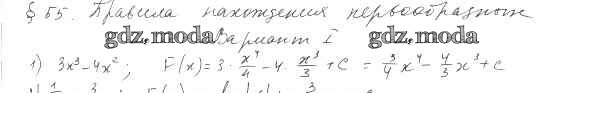 § 55. Правила нахождения первообразных
gdz.moda Вариант I gdz.moda
1) 3x³-4x²; F(x)=3·x⁴/4-4·x³/3+C = 3/4x⁴-4/3x³+C